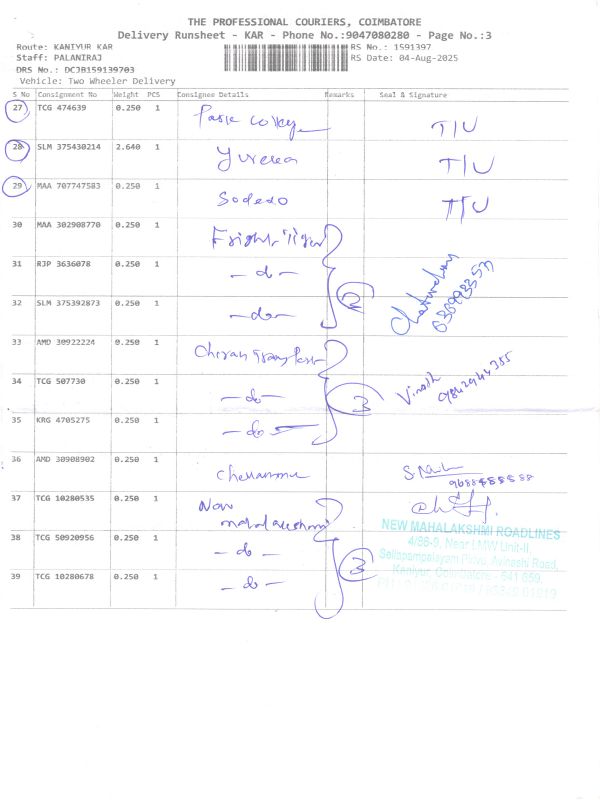 THE PROFESSIONAL COURIERS, COIMBATORE
Delivery Runsheet - KAR - Phone No.:9047080280 - Page No.:3
Route: KANIYUR KAR RS No.: 1591397
Staff: PALANIRAJ RS Date: 04-Aug-2025
DRS No.: DCJB159139703
Vehicle: Two Wheeler Delivery
S No Consignment No Weight PCS Consignee Details Remarks Seal & Signature
27 TCG 474639 0.250 1 T/U
28 SLM 375430214 2.640 1 T/U
29 MAA 707747583 0.250 1 Sodexo T/U
30 MAA 302908770 0.250 1
31 RJP 3636078 0.250 1 - do -
32 SLM 375392873 0.250 1 - do - 2
33 AMD 30922224 0.250 1 Cheran
34 TCG 507730 0.250 1 - do - 3 Vinoth
35 KRG 4705275 0.250 1 - do -
36 AMD 30908902 0.250 1
37 TCG 10280535 0.250 1 New
mahalakshmi
NEW MAHALAKSHMI ROADLINES
38 TCG 50920956 0.250 1 - do - 3
4/98-9, Near LMW Unit-II,
Sellappampalayam Pirivu, Avinashi Road,
39 TCG 10280678 0.250 1 - do -
Kaniyur, Coimbatore - 641 659.